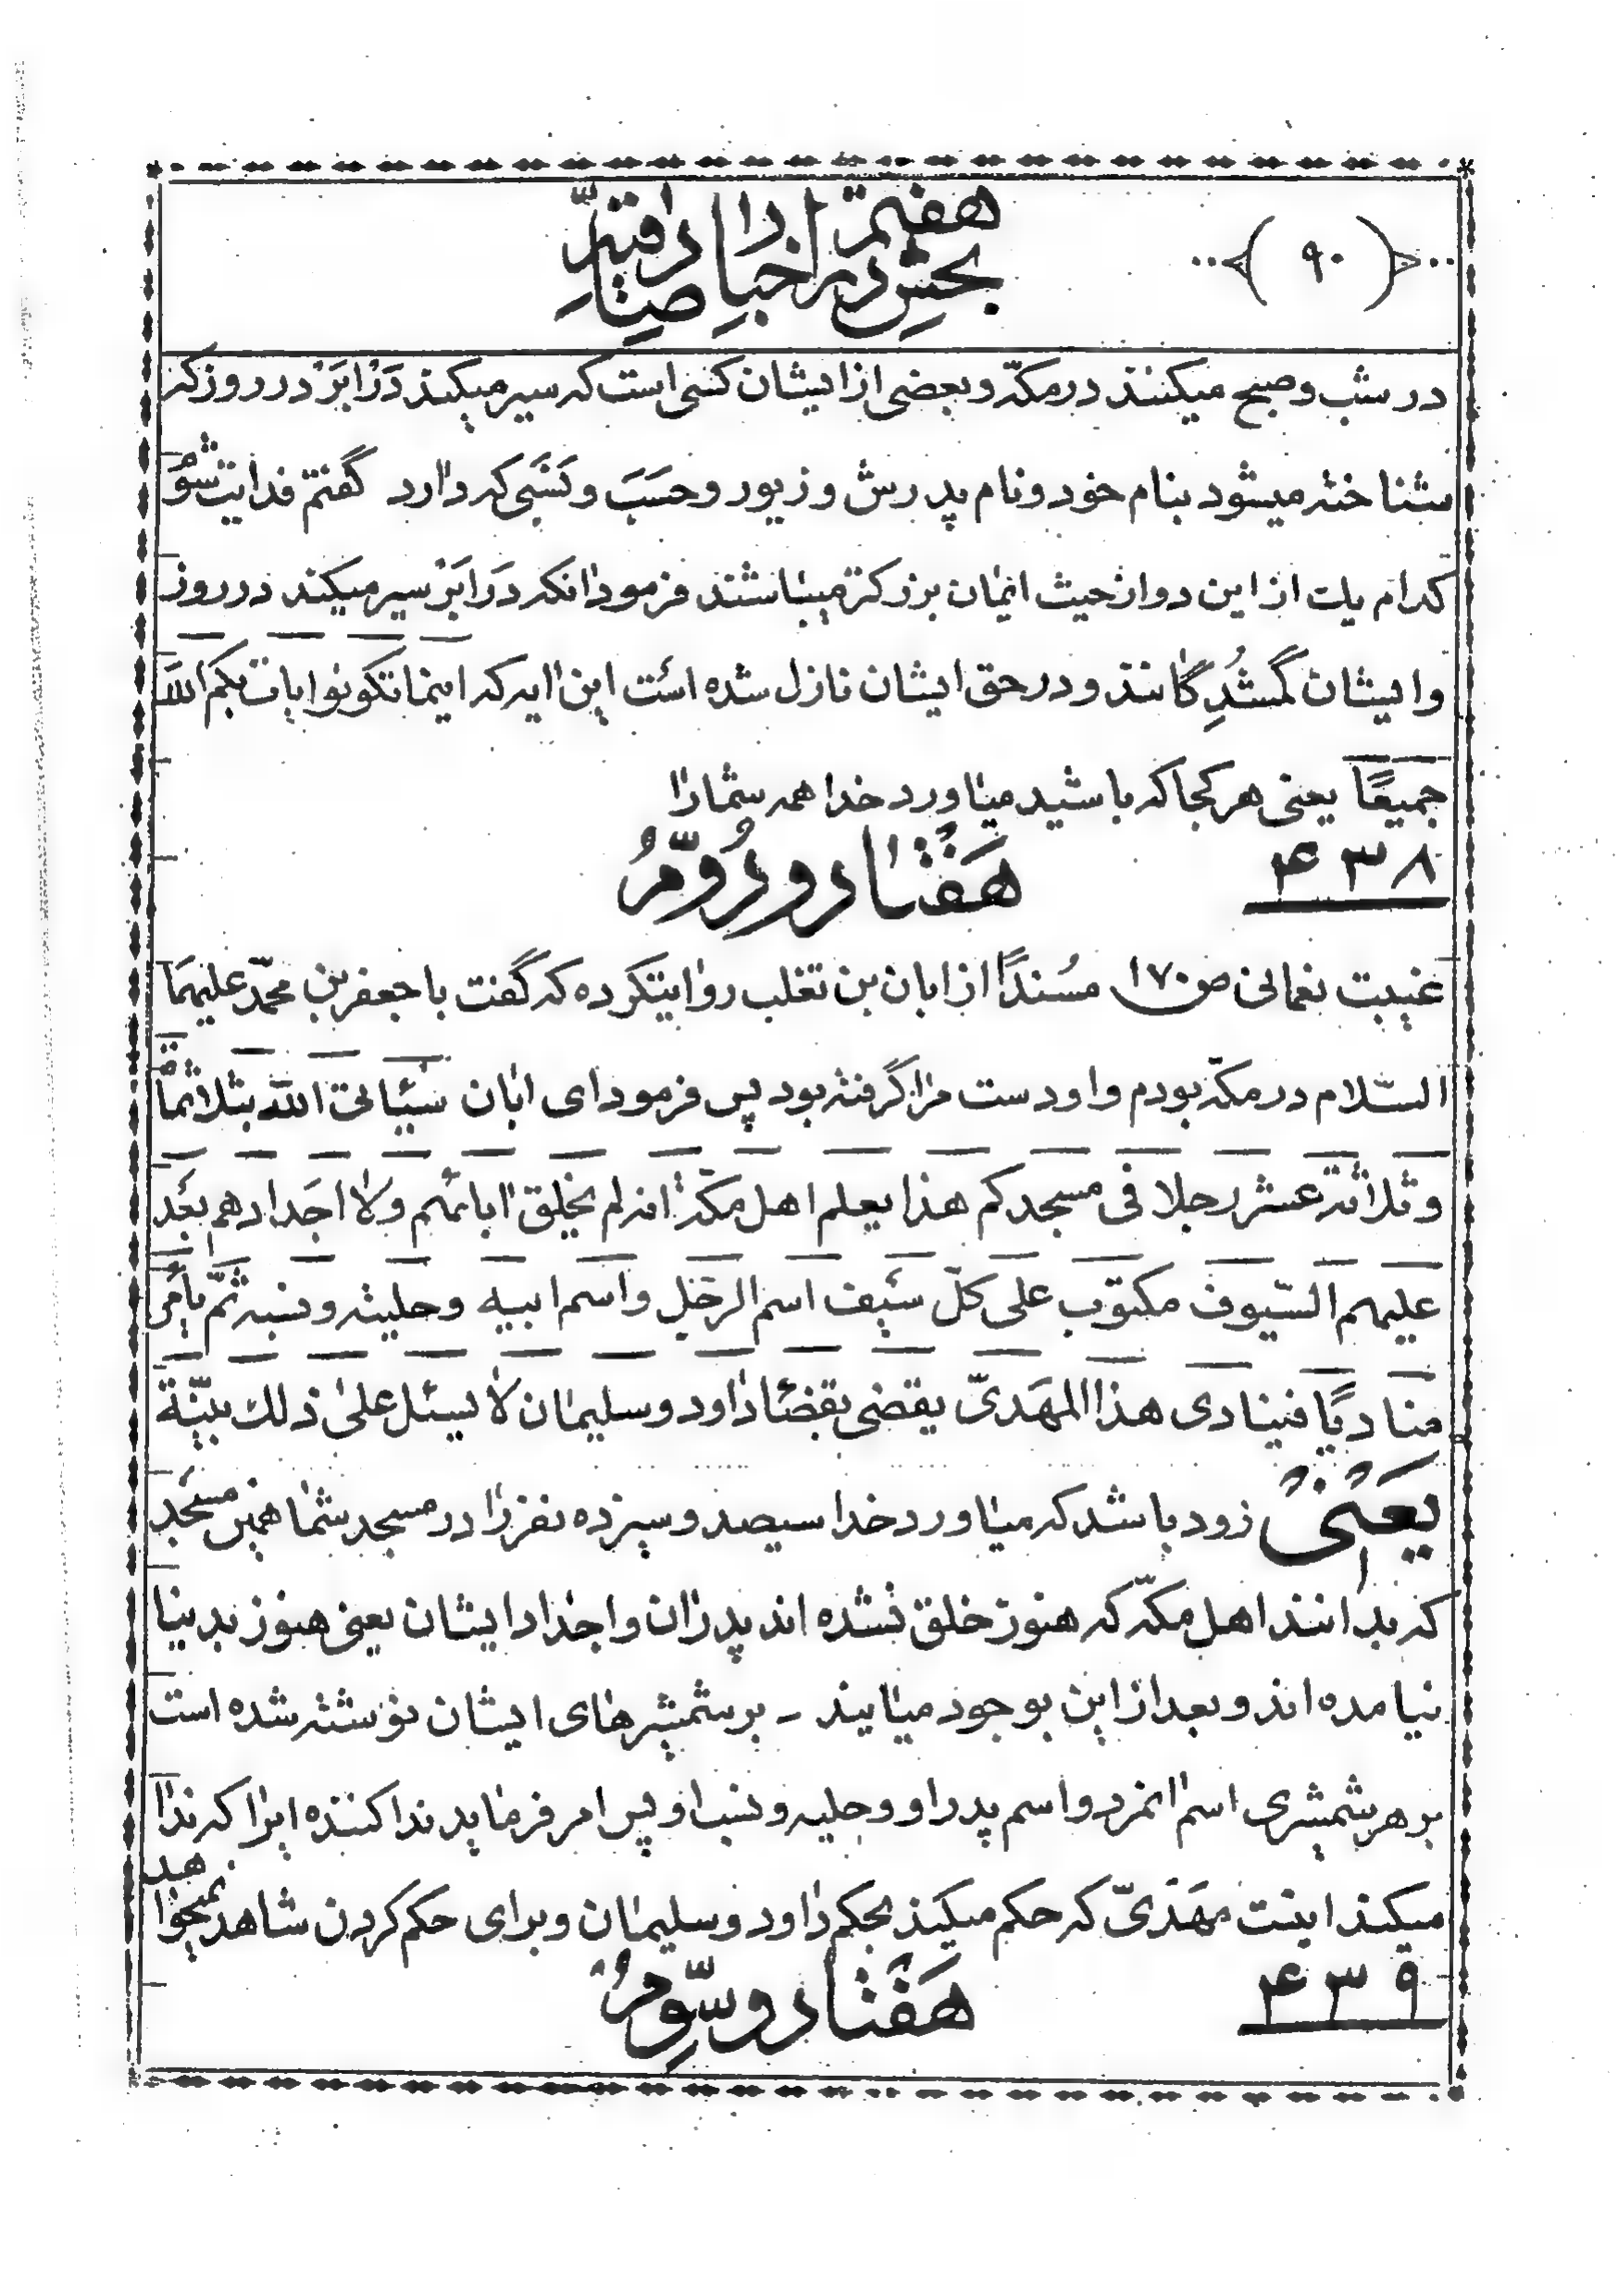 (۹۰)
بخش هفتم در اخبار صادقیّه
در شب و صبح میکنند در مکّه و بعضی از ایشان کسی است که سیر میکند در ابر در روز که
شناخته میشود بنام خود و نام پدرش و زیور و حسب و نسبی که دارد گفتم فدایت شوم
کدام یک از این دو از حیث ایمان بزرگتر میباشند فرمود انکه در ابر سیر میکند در روز
و ایشان گمشدگانند و در حق ایشان نازل شده است این ایه که اینما تکونوا یات بکم الله
جمیعًا یعنی هر کجا که باشید میاورد خدا همه شما را
۴۳۸ هفتاد و دوّم
غیبت نعمانی ص ۱۷۰ مسندًا از ابان بن تغلب روایت کرده که گفت با جعفر بن محمّد علیهما
السّلام در مکّه بودم و او دست مرا گرفته بود پس فرمود ای ابان سیأتی الله بثلاثمأة
و ثلاثة عشر رجلا فی مسجدکم هذا یعلم اهل مکّة انه لم یخلق ابائهم ولا اجدادهم بعد
علیهم السّیوف مکتوب علی کلّ سیف اسم الرجل و اسم ابیه و حلیته و نسبه ثمّ یأمر
منادیًا فینادی هذا المهدیّ یقضی بقضاء داود و سلیمان لا یسئل علی ذلك بیّنة
یعنی زود باشد که میاورد خدا سیصد و سیزده نفر را در مسجد شما همین مسجد
که بدانند اهل مکّه که هنوز خلق نشده اند پدران و اجداد ایشان یعنی هنوز بدنیا
نیامده اند و بعد از این بوجود میایند - بر شمشیرهای ایشان نوشته شده است
بر هر شمشیری اسم انمرد و اسم پدر او و حلیه و نسب او پس امر فرماید ندا کننده ایرا که ندا
میکند اینست مهدیّ که حکم میکند بحکم داود و سلیمان و برای حکم کردن شاهد نمیخواهد
۴۳۹ هفتاد و سوّم